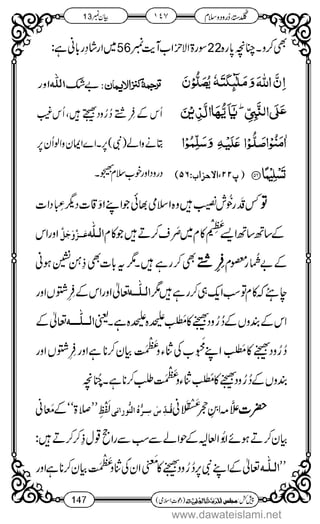 بیان نمبر 13
۱٤۷
گلدستۂ دُرود و سلام
بھی کرو۔ چنانچہ پارہ 22 سورۃ الاحزاب آیت نمبر 56 میں ارشادِ ربانی ہے:
اِنَّ اللّٰهَ وَ مَلٰٓىٕكَتَهٗ یُصَلُّوْنَ
عَلَى النَّبِیِّؕ- یٰۤاَیُّهَا الَّذِیْنَ
اٰمَنُوْا صَلُّوْا عَلَیْهِ وَ سَلِّمُوْا
تَسْلِیْمًا (پ۲۲، الاحزاب: ۵۶)
ترجمۂ کنز الایمان: بے شک اللہ اور
اُس کے فرشتے دُرود بھیجتے ہیں، اُس غیب
بتانے والے (نبی) پر۔ اے ایمان والو! ان پر
درود اور خوب سلام بھیجو۔
تو کس قدر خوش نصیب ہیں وہ اسلامی بھائی جو اپنے اوقات دیگر عبادات
کے ساتھ ساتھ ایسے عظیم کام میں صرف کرتے ہیں جو کام اللہ عَزَّوَجَلَّ اور اس
کے بے شمار معصوم فرشتے بھی کر رہے ہیں۔ مگر یہ بات بھی ذہن نشین ہونی
چاہئے کہ کام تو سب ایک ہی کر رہے ہیں مگر اللہ تعالیٰ اور اس کے فرشتوں اور
اس کے بندوں کے دُرود بھیجنے کا مطلب علیحدہ علیحدہ ہے۔ یعنی اللہ تعالیٰ کے
دُرود بھیجنے کا مطلب اپنے محبوب کی ثناء و عظمت بیان کرنا ہے اور فرشتوں اور
بندوں کے دُرود بھیجنے کا مطلب ثناء و عظمت طلب کرنا ہے۔ چُنانچہ
حضرت علامہ ابن حجر عسقلانی قُدِّسَ سِرُّہُ النُّورانی لفظِ ”صلاۃ“ کے معانی
بیان کرتے ہوئے ابو العالیہ کے حوالے سے سب سے راجح قول ذکر کرتے ہیں:
”اللہ تعالیٰ کے اپنے نبی پر دُرود بھیجنے کا معنی ان کی ثناء و عظمت بیان کرنا ہے اور
147
پیش کش: مجلس المدینۃ العلمیۃ (دعوتِ اسلامی)
www.dawateislami.net